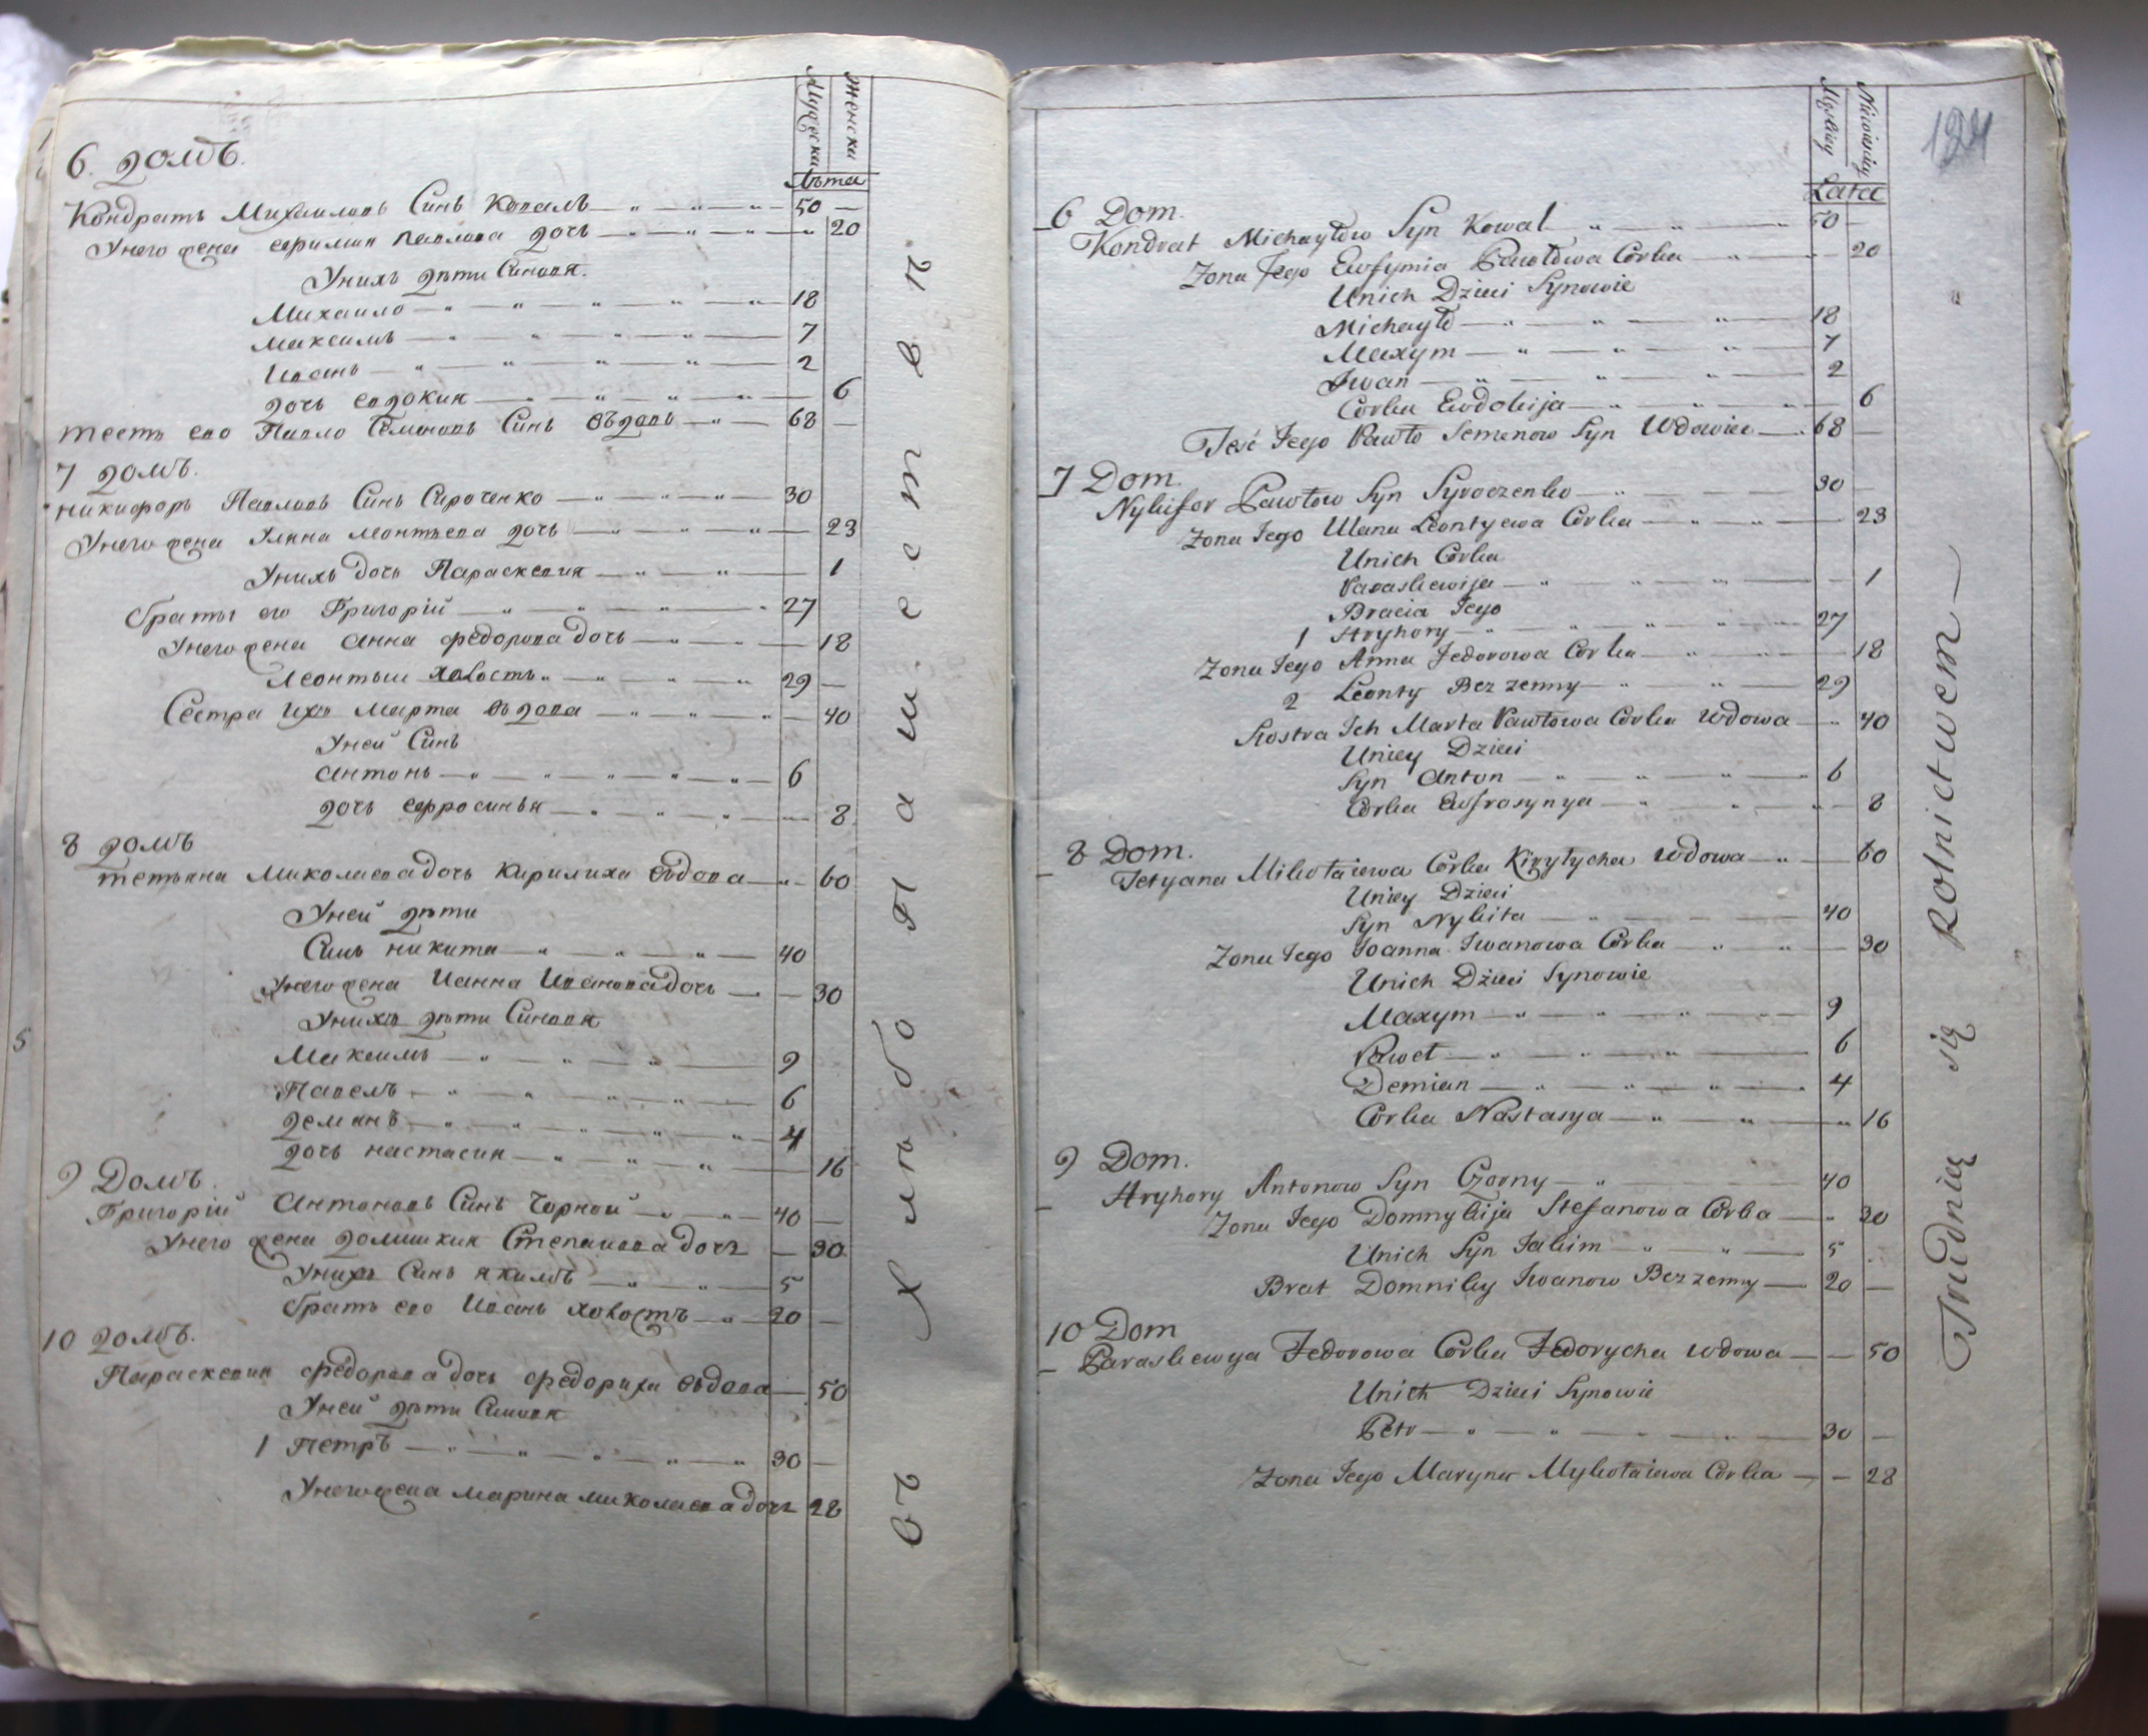 Мужеска
Женска
Лѣта
6. домъ.
Кондратъ Михаиловъ Синъ Коваль — „ — „ — „ — 50 —
Унего жена Ефимия Павлова дочь — „ — „ — „ — „ 20
Унихъ дѣти Синовя.
Михаило — „ — „ — „ — „ — „ — 18
Максимъ — „ — „ — „ — „ — 7
Иванъ — „ — „ — „ — „ — 2
дочь Евдокия — „ — „ — „ — „ — 6
тесть его Павло Семеновъ Синъ Вѣдовъ — „ — 68 —
7 домъ.
никифоръ Павловъ Синъ Сироченко — „ — „ — „ — 30
Унего жена Уляна леонтьева дочь — „ — „ — „ — 23
Унихъ дочь Параскевия — „ — „ — 1
браты его Григорій — „ — „ — „ — „ 27
Унего жена Анна федорова дочь — „ — „ — 18
Леонтыи холостъ „ — „ — „ — „ 29 —
Сестра Ихъ Марта вѣдова — „ — „ — „ — 40
Уней Синъ
Антонъ — „ — „ — „ — „ — „ — 6
дочь ефросинья — „ — „ — „ — „ — 8
8 домъ
тетьяна Миколаева дочь Кирилиха вѣдова — „ — 60
Уней дѣти
Синъ никита — „ — „ — „ — „ — 40
Унего жена Ианна Иванова дочь — — 30
Унихъ дѣти Синовя
Максимъ — „ — „ — „ — 9
Павелъ — „ — „ — „ — „ — 6
демянъ — „ — „ — „ — „ — „ — 4
дочь настасия — „ — „ — „ — 16
9 Домъ.
Григорій Антоновъ Синъ Чорной — „ — „ — 40 —
Унего жена домникия Степанова дочъ — 30
Унихъ Синъ якимъ — „ — „ — 5
братъ его Иванъ холостъ — „ — 20 —
10 домъ.
Параскевия федорова дочь федориха вѣдова — 50
Уней дѣти Синовя
1 Петръ — „ — „ — „ — „ — „ 30 —
Унего жена марина миколаева дочъ 28
въ Хлѣбопашествѣ
124
Męskiey
Niewiasciey
Lata
6 Dom.
Kondrat Michayłow Syn Kowal „ — „ — 50 —
Zona Jego Ewfymia Pawłowa Corka — „ — — 20
Unich Dzieci Synowie
Michayło — „ — „ — „ — 18
Maxym — „ — „ — „ — 7
Iwan — „ — „ — „ — 2
Corka Ewdokija — „ — „ — „ — 6
Teść Jego Pawło Semenow Syn Wdowiec — 68 —
7 Dom.
Nykifor Pawłow Syn Syroczenko — „ — 30
Zona Jego Ulana Leontyewa Corka — „ — „ — 23
Unich Corka
Paraskewija — „ — „ — „ — — 1
Bracia Jego
1 Hryhory — „ — „ — „ — „ — 27
Zona Jego Anna Fedorowa Corka — „ — „ — 18
2 Leonty Bezzenny — „ — „ — 29
Siostra Ich Marta Pawłowa Corka Wdowa — „ 40
Uniey Dzieci
Syn Anton — „ — „ — „ — 6
Corka Ewfrasynya — „ — „ — „ — 8
8 Dom.
Tetyana Mikołaiewa Corka Kiryłycha Wdowa — „ — 60
Uniey Dzieci
Syn Nykita — „ — „ — 40
Zona Jego Joanna Iwanowa Corka — „ — „ — 30
Unich Dzieci Synowie
Maxym — „ — „ — „ — „ — 9
Paweł — „ — „ — „ — 6
Demian — „ — „ — „ — 4
Corka Nastasya — „ — „ — „ 16
9 Dom.
Hryhory Antonow Syn Czorny — „ — 40
Zona Jego Domnykija Stefanowa Corka — „ 30
Unich Syn Jakim — „ — „ — 5
Brat Domniky Iwanow Bezzenny — 20 —
10 Dom
Paraskewya Fedorowa Corka Fedorycha Wdowa — — 50
Unich Dzieci Synowie
Petr — „ — „ — „ — „ — 30 —
Zona Jego Maryna Mykołaiewa Corka — — 28
Trudnią się Rolnictwem —